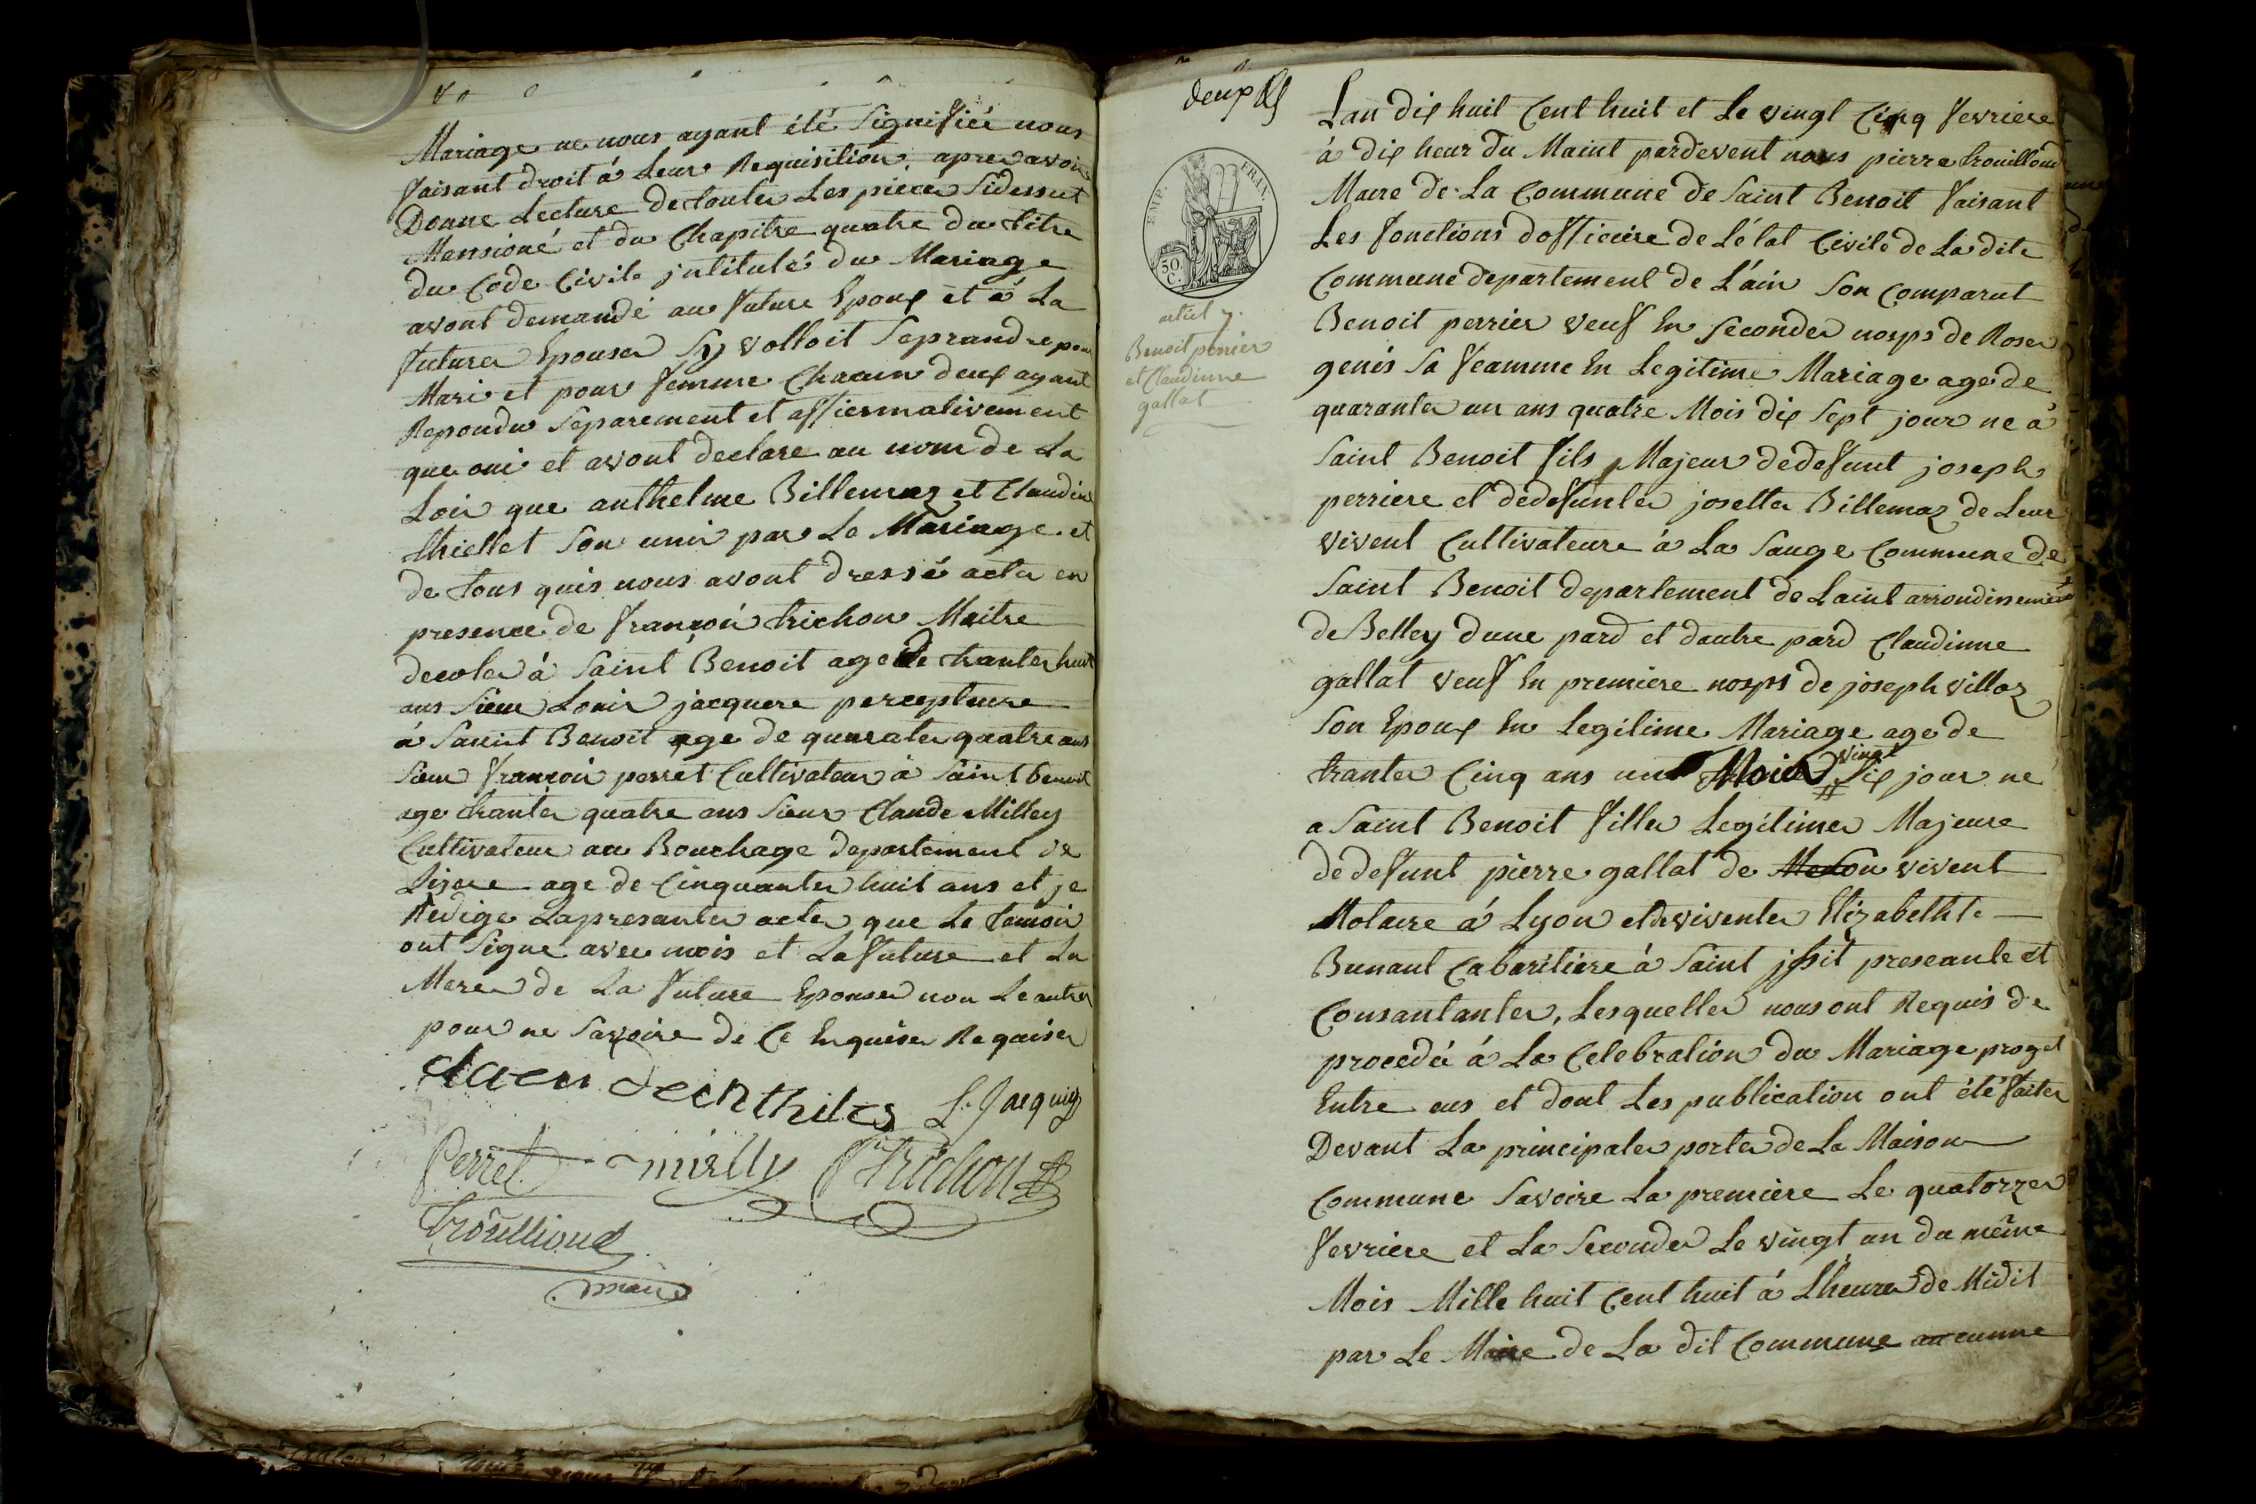 Mariage ne nous ayant été Signifiée nous
faisant droit á Leur Requisition apres avoir
Donne Lecture detoutes Les pièces Sidessut
Mensioné et du Chapitre quatre du titre
du Code Civile jntitulé du Mariage
avont demandé au future Epoux et á La
future Epouse Sy volloit Seprandre pour
Mari et pour femme Chacun deux ayant
Repondu Separement et affiermativement
que oui et avont declare au nom de La
Loir que anthelme Billemaz et Claudine
thiellet Son unir par Le Mariage et
de tous quis nous avont dressé acte en
presence de françois trichon Maitre
decole á Saint Benoit age de trante huit
ans Sieur Louis jacquere percepteure
á Saint Benoit age de quarate quatre ans
Sieur françois perret Cultivateur á Saint benoit
age trante quatre ans Sieur Claude Milley
Cultivateur au Bouchage departement de
Lisere age de Cinquante huit ans et je
Redige Lapresante acte que Le temoin
ont Signe avec mois et La future et La
Mere de La future Epouse non Le autre
pour ne Savoire de Ce Enquise Requise
L. Jacquin
Perret milly Trichon
Trouilloud
maire
deux
EMP. FRAN.
50 C.
articl 7.
Benoit perrier
et Claudinne
gallat
Lan dix huit Cent huit et Le vingt Cinq fevriere
à dix heur du Maint pardevent nous pierre trouilloud
Maire de La Commune de Saint Benoit faisant
Les fonctions dofficière de L'état Civile de La dite
Commune departement de L'áin Son Comparut
Benoit perrier veuf En Seconde nosps de Rose
genis Sa feamme En Legitime Mariage age de
quarante un ans quatre Mois dix Sept jour ne á
Saint Benoit fils Majeur dedefunt joseph
perriere et dedefunte josette Billemaz de Leur
vivent Cultivateure á La Sauge Commune de
Saint Benoit departement de Laint arrondissement
de Belley dune pard et dautre pard Claudinne
gallat veuf En premiere nosps de joseph villoz
Son Epoux En Legitime Mariage age de
trante Cinq ans un Mois vingt Six jour ne
a Saint Benoit fille Legitime Majeure
dedefunt pierre gallat de Son vivent
Notaire á Lyon et de vivente Elizabeth
Bunant Cabaritiere á Saint preseante et
Consantante, Lesquelles nous ont Requis de
procedé á La Celebration du Mariage proget
Entre eus et dont Les publication ont été faites
Devant La principale porte de La Maison
Commune Savoire La premiere Le quatorze
fevriere et La Seconde Le vingt un du même
Mois Mille huit Cent huit á Lheure de Midit
par Le Maire de La dit Commune aucunne